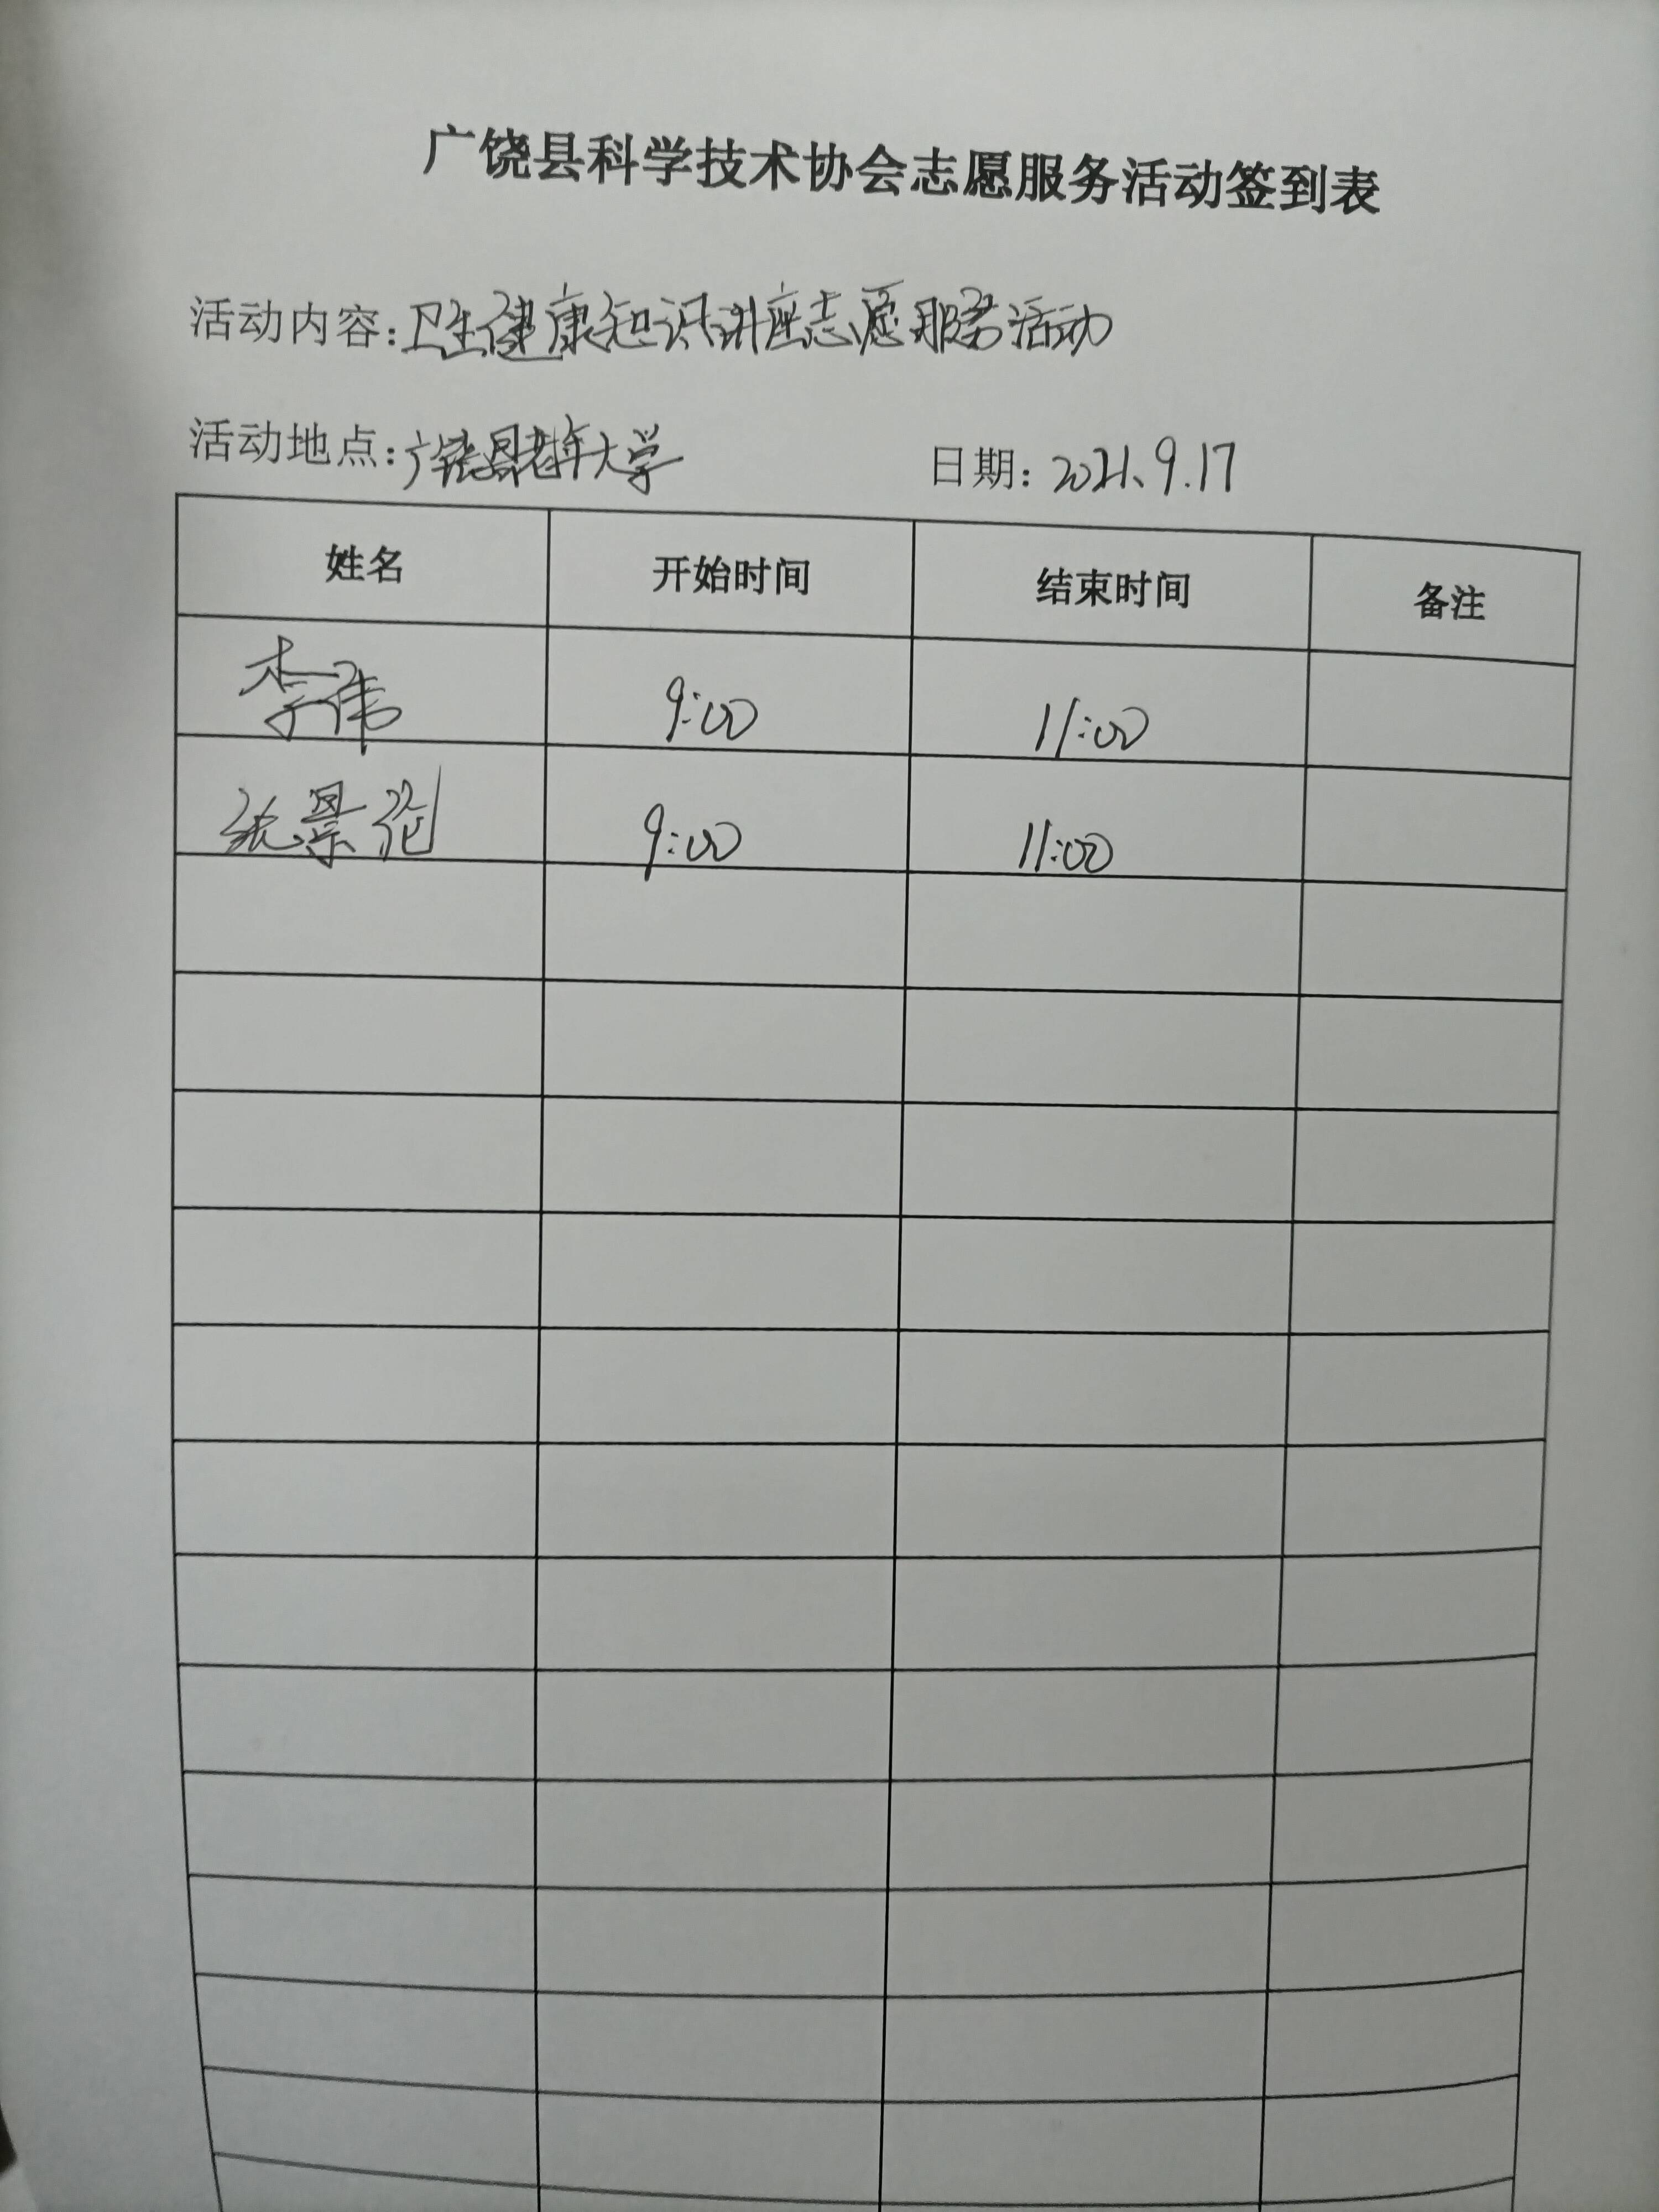 广饶县科学技术协会志愿服务活动签到表
活动内容:卫生健康知识讲座志愿服务活动
活动地点:广饶县老年大学 日期:2021、9.17
姓名 开始时间 结束时间 备注
李伟 9:00 11:00
景 9:00 11:00